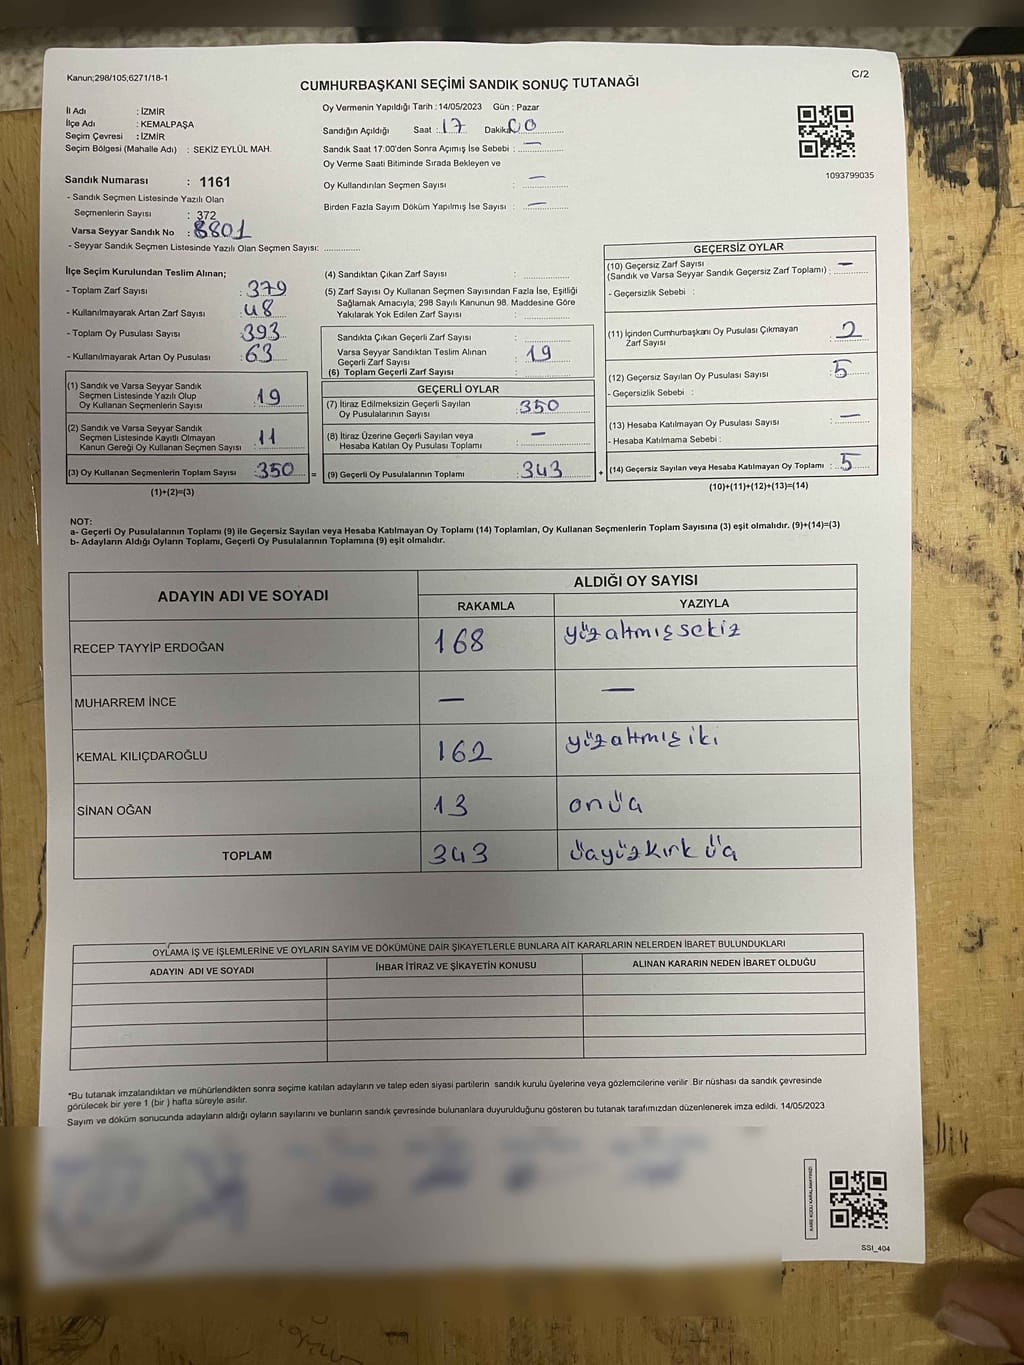 Kanun;298/105;6271/18-1
C/2
CUMHURBAŞKANI SEÇİMİ SANDIK SONUÇ TUTANAĞI
İl Adı : İZMİR
İlçe Adı : KEMALPAŞA
Seçim Çevresi : İZMİR
Seçim Bölgesi (Mahalle Adı) : SEKİZ EYLÜL MAH.
Sandık Numarası : 1161
- Sandık Seçmen Listesinde Yazılı Olan
Seçmenlerin Sayısı : 372
Varsa Seyyar Sandık No : 8801
- Seyyar Sandık Seçmen Listesinde Yazılı Olan Seçmen Sayısı: ..............
Oy Vermenin Yapıldığı Tarih : 14/05/2023 Gün : Pazar
Sandığın Açıldığı Saat : 17 Dakika 00
Sandık Saat 17:00'den Sonra Açımış İse Sebebi : —
Oy Verme Saati Bitiminde Sırada Bekleyen ve
Oy Kullandırılan Seçmen Sayısı : —
Birden Fazla Sayım Döküm Yapılmış İse Sayısı : —
1093799035
İlçe Seçim Kurulundan Teslim Alınan;
- Toplam Zarf Sayısı : 379
- Kullanılmayarak Artan Zarf Sayısı : 48
- Toplam Oy Pusulası Sayısı : 393
- Kullanılmayarak Artan Oy Pusulası : 63
(1) Sandık ve Varsa Seyyar Sandık
Seçmen Listesinde Yazılı Olup
Oy Kullanan Seçmenlerin Sayısı : 19
(2) Sandık ve Varsa Seyyar Sandık
Seçmen Listesinde Kayıtlı Olmayan
Kanun Gereği Oy Kullanan Seçmen Sayısı : 11
(3) Oy Kullanan Seçmenlerin Toplam Sayısı : 350 =
(1)+(2)=(3)
(4) Sandıktan Çıkan Zarf Sayısı : ..............
(5) Zarf Sayısı Oy Kullanan Seçmen Sayısından Fazla İse, Eşitliği
Sağlamak Amacıyla; 298 Sayılı Kanunun 98. Maddesine Göre
Yakılarak Yok Edilen Zarf Sayısı : ..............
Sandıkta Çıkan Geçerli Zarf Sayısı : ..............
Varsa Seyyar Sandıktan Teslim Alınan
Geçerli Zarf Sayısı : 19
(6) Toplam Geçerli Zarf Sayısı :
GEÇERLİ OYLAR
(7) İtiraz Edilmeksizin Geçerli Sayılan
Oy Pusulalarının Sayısı : 350
(8) İtiraz Üzerine Geçerli Sayılan veya
Hesaba Katılan Oy Pusulası Toplamı : —
(9) Geçerli Oy Pusulalarının Toplamı : 343 +
GEÇERSİZ OYLAR
(10) Geçersiz Zarf Sayısı
(Sandık ve Varsa Seyyar Sandık Geçersiz Zarf Toplamı) : —
- Geçersizlik Sebebi :
(11) İçinden Cumhurbaşkanı Oy Pusulası Çıkmayan
Zarf Sayısı : 2
(12) Geçersiz Sayılan Oy Pusulası Sayısı : 5
- Geçersizlik Sebebi :
(13) Hesaba Katılmayan Oy Pusulası Sayısı : —
- Hesaba Katılmama Sebebi :
(14) Geçersiz Sayılan veya Hesaba Katılmayan Oy Toplamı : 5
(10)+(11)+(12)+(13)=(14)
NOT:
a- Geçerli Oy Pusulalarının Toplamı (9) ile Geçersiz Sayılan veya Hesaba Katılmayan Oy Toplamı (14) Toplamları, Oy Kullanan Seçmenlerin Toplam Sayısına (3) eşit olmalıdır. (9)+(14)=(3)
b- Adayların Aldığı Oyların Toplamı, Geçerli Oy Pusulalarının Toplamına (9) eşit olmalıdır.
ADAYIN ADI VE SOYADI ALDIĞI OY SAYISI
RAKAMLA YAZIYLA
RECEP TAYYİP ERDOĞAN 168 yüzaltmışsekiz
MUHARREM İNCE — —
KEMAL KILIÇDAROĞLU 162 yüzaltmışiki
SİNAN OĞAN 13 onüç
TOPLAM 343 üçyüzkırk üç
OYLAMA İŞ VE İŞLEMLERİNE VE OYLARIN SAYIM VE DÖKÜMÜNE DAİR ŞİKAYETLERLE BUNLARA AİT KARARLARIN NELERDEN İBARET BULUNDUKLARI
ADAYIN ADI VE SOYADI İHBAR İTİRAZ VE ŞİKAYETİN KONUSU ALINAN KARARIN NEDEN İBARET OLDUĞU
*Bu tutanak imzalandıktan ve mühürlendikten sonra seçime katılan adayların ve talep eden siyasi partilerin sandık kurulu üyelerine veya gözlemcilerine verilir .Bir nüshası da sandık çevresinde
görülecek bir yere 1 (bir ) hafta süreyle asılır.
Sayım ve döküm sonucunda adayların aldığı oyların sayılarını ve bunların sandık çevresinde bulunanlara duyurulduğunu gösteren bu tutanak tarafımızdan düzenlenerek imza edildi. 14/05/2023
SSI_404